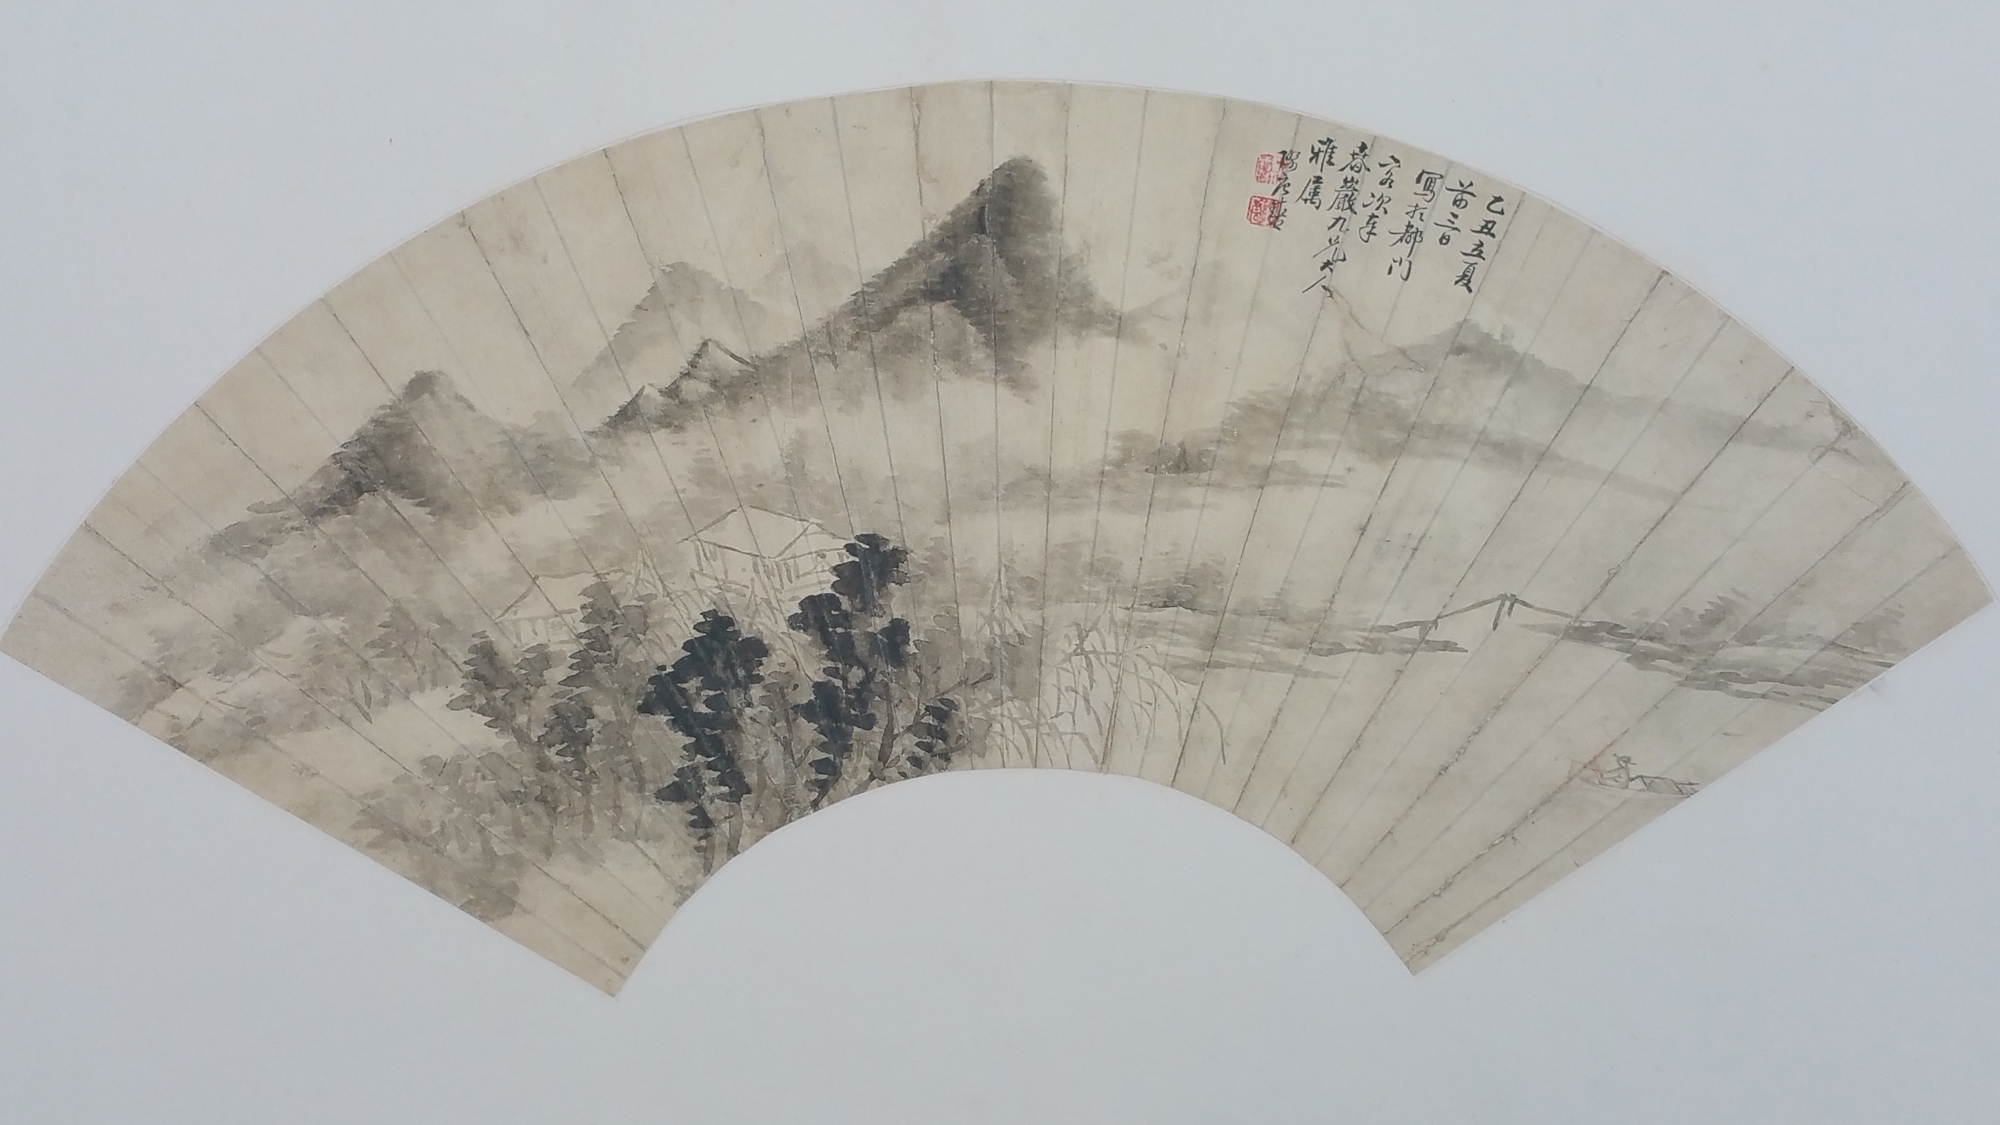 乙丑立夏
前三日
寫於都門
客次奉
春巖九兄大人
雅屬